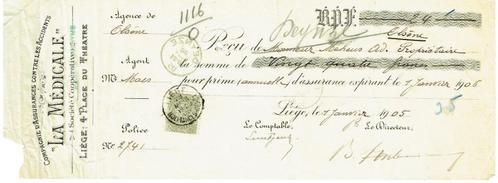 COMPAGNIE D'ASSURANCES CONTRE LES ACCIDENTS
"LA MÉDICALE"
Société Coopérative
LIÉGE: 4 PLACE DU THÉATRE
Agence de
Elsône
Agent
Mr Maes
Police
No 2741
1166
B.P.F. 24
Elsône
Reçu de Monsieur Maheus Ad. Propriétaire
la somme de Vingt quatre francs
pour prime (annuelle) d'assurance expirant le 1 Janvier 1906
Liége, le 1 Janvier 1905
Le Comptable,
Le Directeur,
25